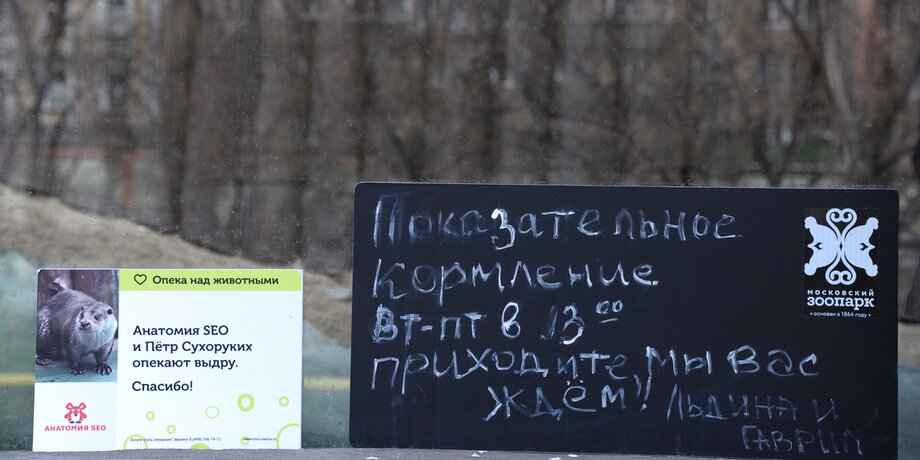 Опека над животными
Анатомия SEO
и Пётр Сухоруких
опекают выдру.
Спасибо!
АНАТОМИЯ SEO
Хотите стать опекуном? Звоните 8 (499) 766-74-12
www.moscowzoo.ru
Показательное
кормление
Вт-пт в 13 00
приходите, мы вас
ждём! Льдина и
Гаврил
МОСКОВСКИЙ
ЗООПАРК
основан в 1864 году